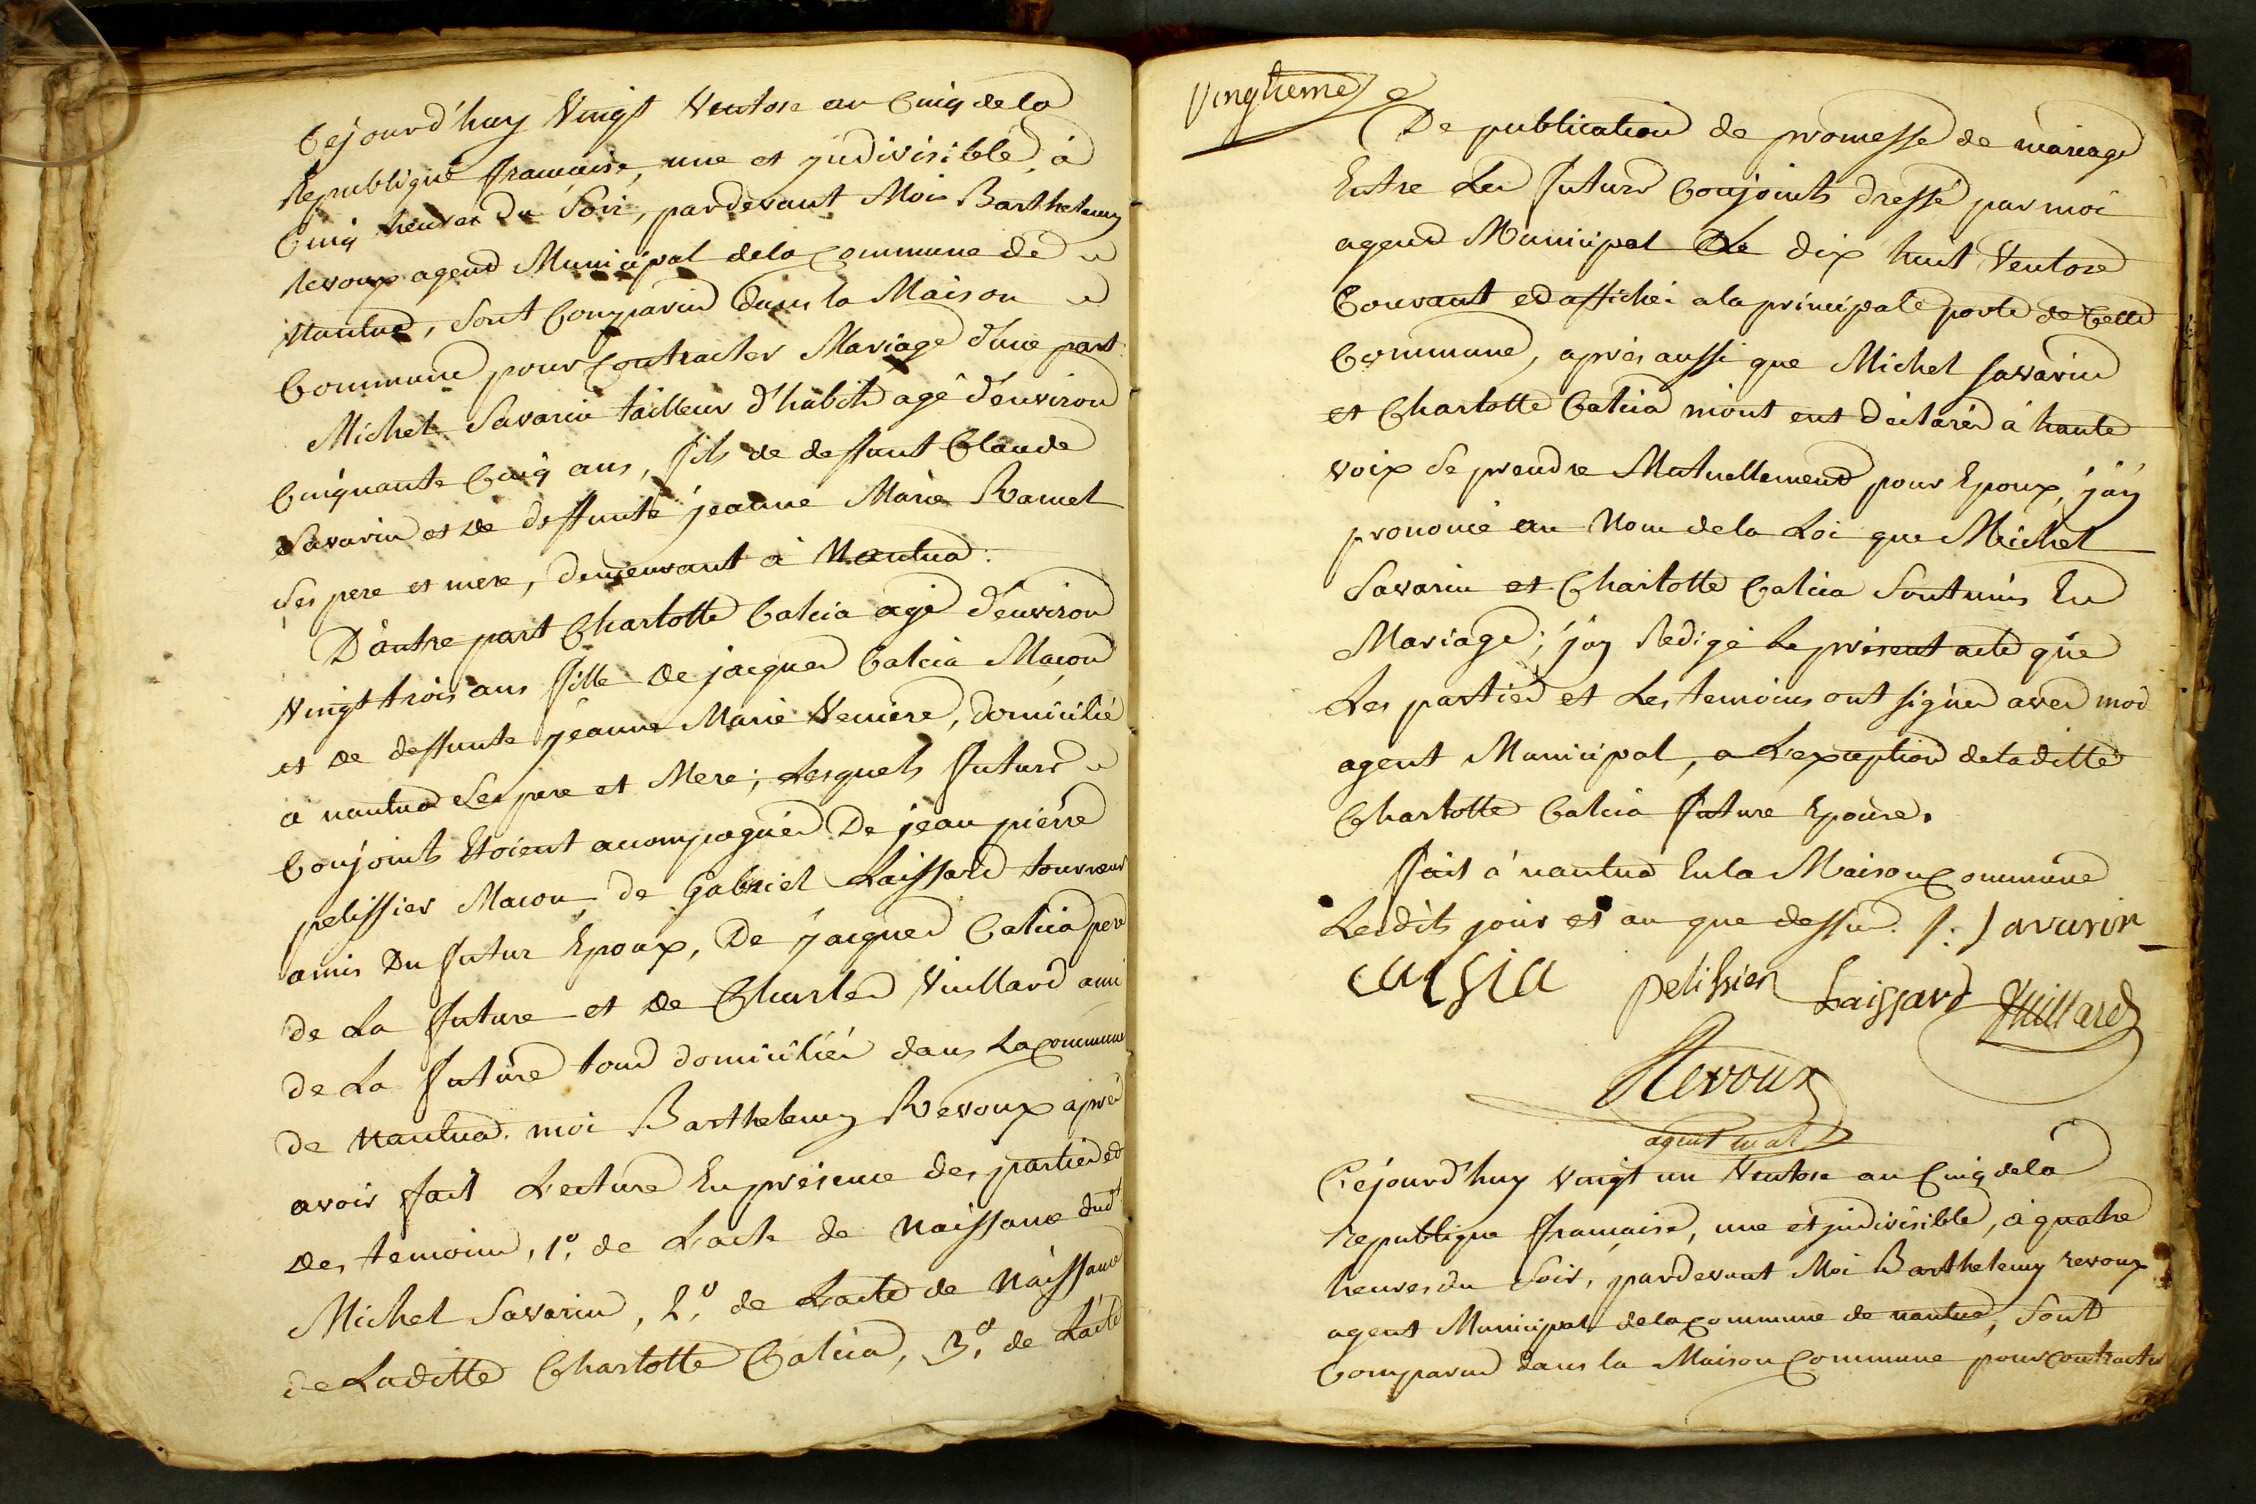 Cejourd'huy Vingt Ventose an Cinq de la
Republique française, une et jndivisible à
Cinq heures du Soir, pardevant Moi Barthelemy
Revoux agend Municipal de la Commune de
Nantua, Sont Comparus dans la Maison
Commune pour Contracter Mariage d'une part
Michel Savarin tailleur d'habits agé d'environ
Cinquante Cinq ans, fils de deffunt Claude
Savarin et de deffunte jeanne Marie Ramel
Ses pere et mere, demeurant à Nantua.
D'autre part Charlotte Calcia agé d'environ
Vingt trois ans fille de jacques Calcia Macon
et de deffunte jeanne Marie Veniere, domicilié
a nantua Ses pere et Mere; Lesquels futurs
Conjoints Etoient acompagnés De jean pierre
pelissier Macon, de Gabriel Laissard tourneur
amis Du futur Epoux, De jacques Calcia pere
de La future et de Charles Vuillard ami
de La future tous domiciliés dans La commune
de Nantua. moi Barthelemy Revoux après
avoir fait Lecture En présence des parties et
des temoins, 1°. de L'acte de Naissance dudt
Michel Savarin, 2°. de L'acte de Naissance
de Laditte Charlotte Calcia, 3°. de L'acte
Vingtieme
De publication de promesse de mariage
Entre Les futurs Conjoints dressé par moi
agend Municipal Le dix huit Ventose
Courant et affiché a la principale porte de Cette
Commune, après aussi que Michel Savarin
et Charlotte Calcia m'ont eut déclarés à haute
voix Se prendre Mutuellement pour Epoux, j'ay
prononcé au Nom de la Loi que Michel
Savarin et Charlotte Calcia Sont unis En
Mariage; j'ay Redigé Le présent acte que
Les parties et Les temoins ont signés avec moi
agent Municipal, a L'exception de laditte
Charlotte Calcia future Epouse.
fait à nantua En la Maison Commune
Lesdits jour et an que dessus. /: Savarin
calsia pelissier Laissard Vuillard
Revoux
agent mal
Cejourd'huy vingt un Ventose an Cinq de la
republique française, une et jndivisible, à quatre
heures du Soir, pardevant Moi Barthelemy revoux
agent Municipal de la Commune de nantua, Sont
Comparus dans la Maison Commune pour Contracter